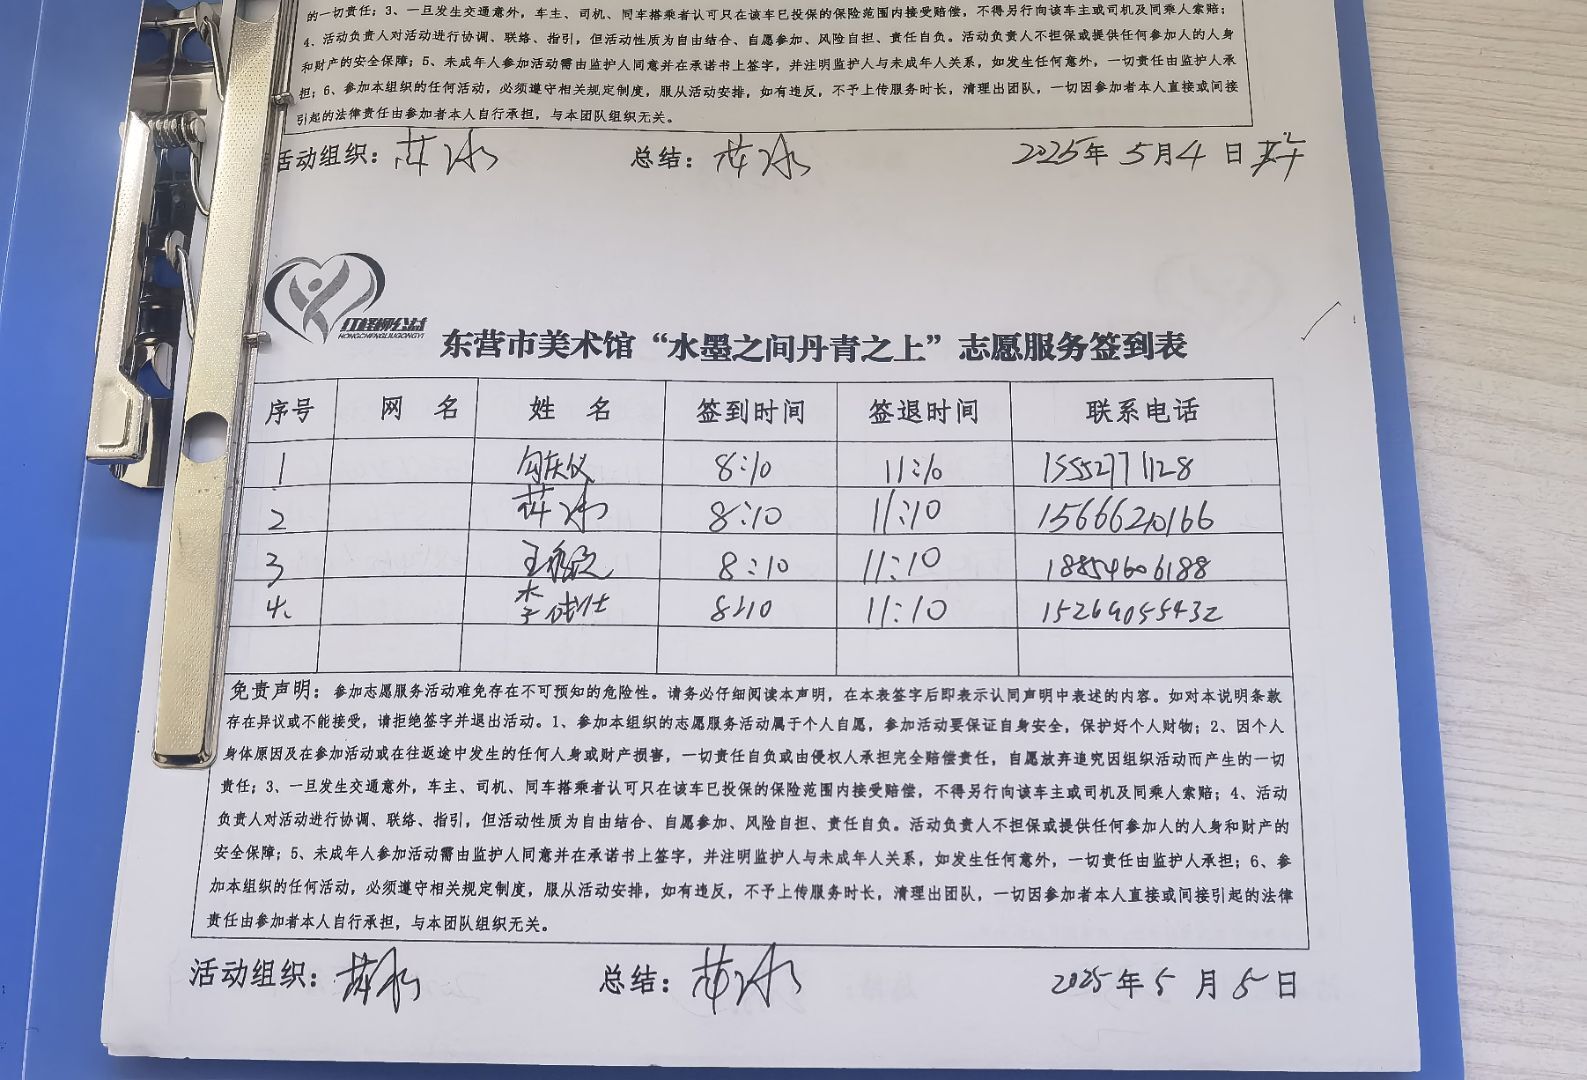 的一切责任；3、一旦发生交通意外，车主、司机、同车搭乘者认可只在该车已投保的保险范围内接受赔偿，不得另行向该车主或司机及同乘人索赔；
4、活动负责人对活动进行协调、联络、指引，但活动性质为自由结合、自愿参加、风险自担、责任自负。活动负责人不担保或提供任何参加人的人身
和财产的安全保障；5、未成年人参加活动需由监护人同意并在承诺书上签字，并注明监护人与未成年人关系，如发生任何意外，一切责任由监护人承
担；6、参加本组织的任何活动，必须遵守相关规定制度，服从活动安排，如有违反，不予上传服务时长，清理出团队，一切因参加者本人直接或间接
引起的法律责任由参加者本人自行承担，与本团队组织无关。
活动组织： 总结： 2025年 5月4 日
红柽柳公益
HONGCHENGLIUGONGYI
东营市美术馆“水墨之间丹青之上”志愿服务签到表
序号 网 名 姓 名 签到时间 签退时间 联系电话
1 8:10 11:10 15552771128
2 8:10 11:10 15666210166
3 8:10 11:10 18854606188
4、 8:10 11:10 15269055432
免责声明：参加志愿服务活动难免存在不可预知的危险性。请务必仔细阅读本声明，在本表签字后即表示认同声明中表述的内容。如对本说明条款
存在异议或不能接受，请拒绝签字并退出活动。1、参加本组织的志愿服务活动属于个人自愿，参加活动要保证自身安全，保护好个人财物；2、因个人
身体原因及在参加活动或在往返途中发生的任何人身或财产损害，一切责任自负或由侵权人承担完全赔偿责任，自愿放弃追究因组织活动而产生的一切
责任；3、一旦发生交通意外，车主、司机、同车搭乘者认可只在该车已投保的保险范围内接受赔偿，不得另行向该车主或司机及同乘人索赔；4、活动
负责人对活动进行协调、联络、指引，但活动性质为自由结合、自愿参加、风险自担、责任自负。活动负责人不担保或提供任何参加人的人身和财产的
安全保障；5、未成年人参加活动需由监护人同意并在承诺书上签字，并注明监护人与未成年人关系，如发生任何意外，一切责任由监护人承担；6、参
加本组织的任何活动，必须遵守相关规定制度，服从活动安排，如有违反，不予上传服务时长，清理出团队，一切因参加者本人直接或间接引起的法律
责任由参加者本人自行承担，与本团队组织无关。
活动组织： 总结： 2025年 5 月 5 日